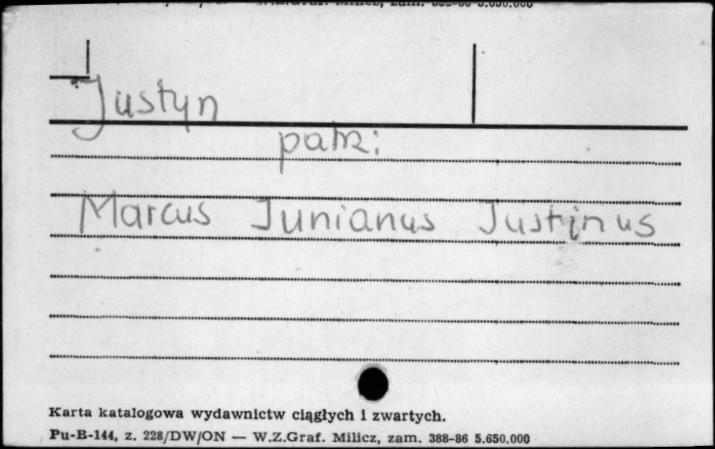 Justyn
patrz:
Marcus Junianus Justinus
Karta katalogowa wydawnictw ciągłych i zwartych.
Pu-B-144, z. 228/DW/ON — W.Z.Graf. Milicz, zam. 388-86 5.650.000